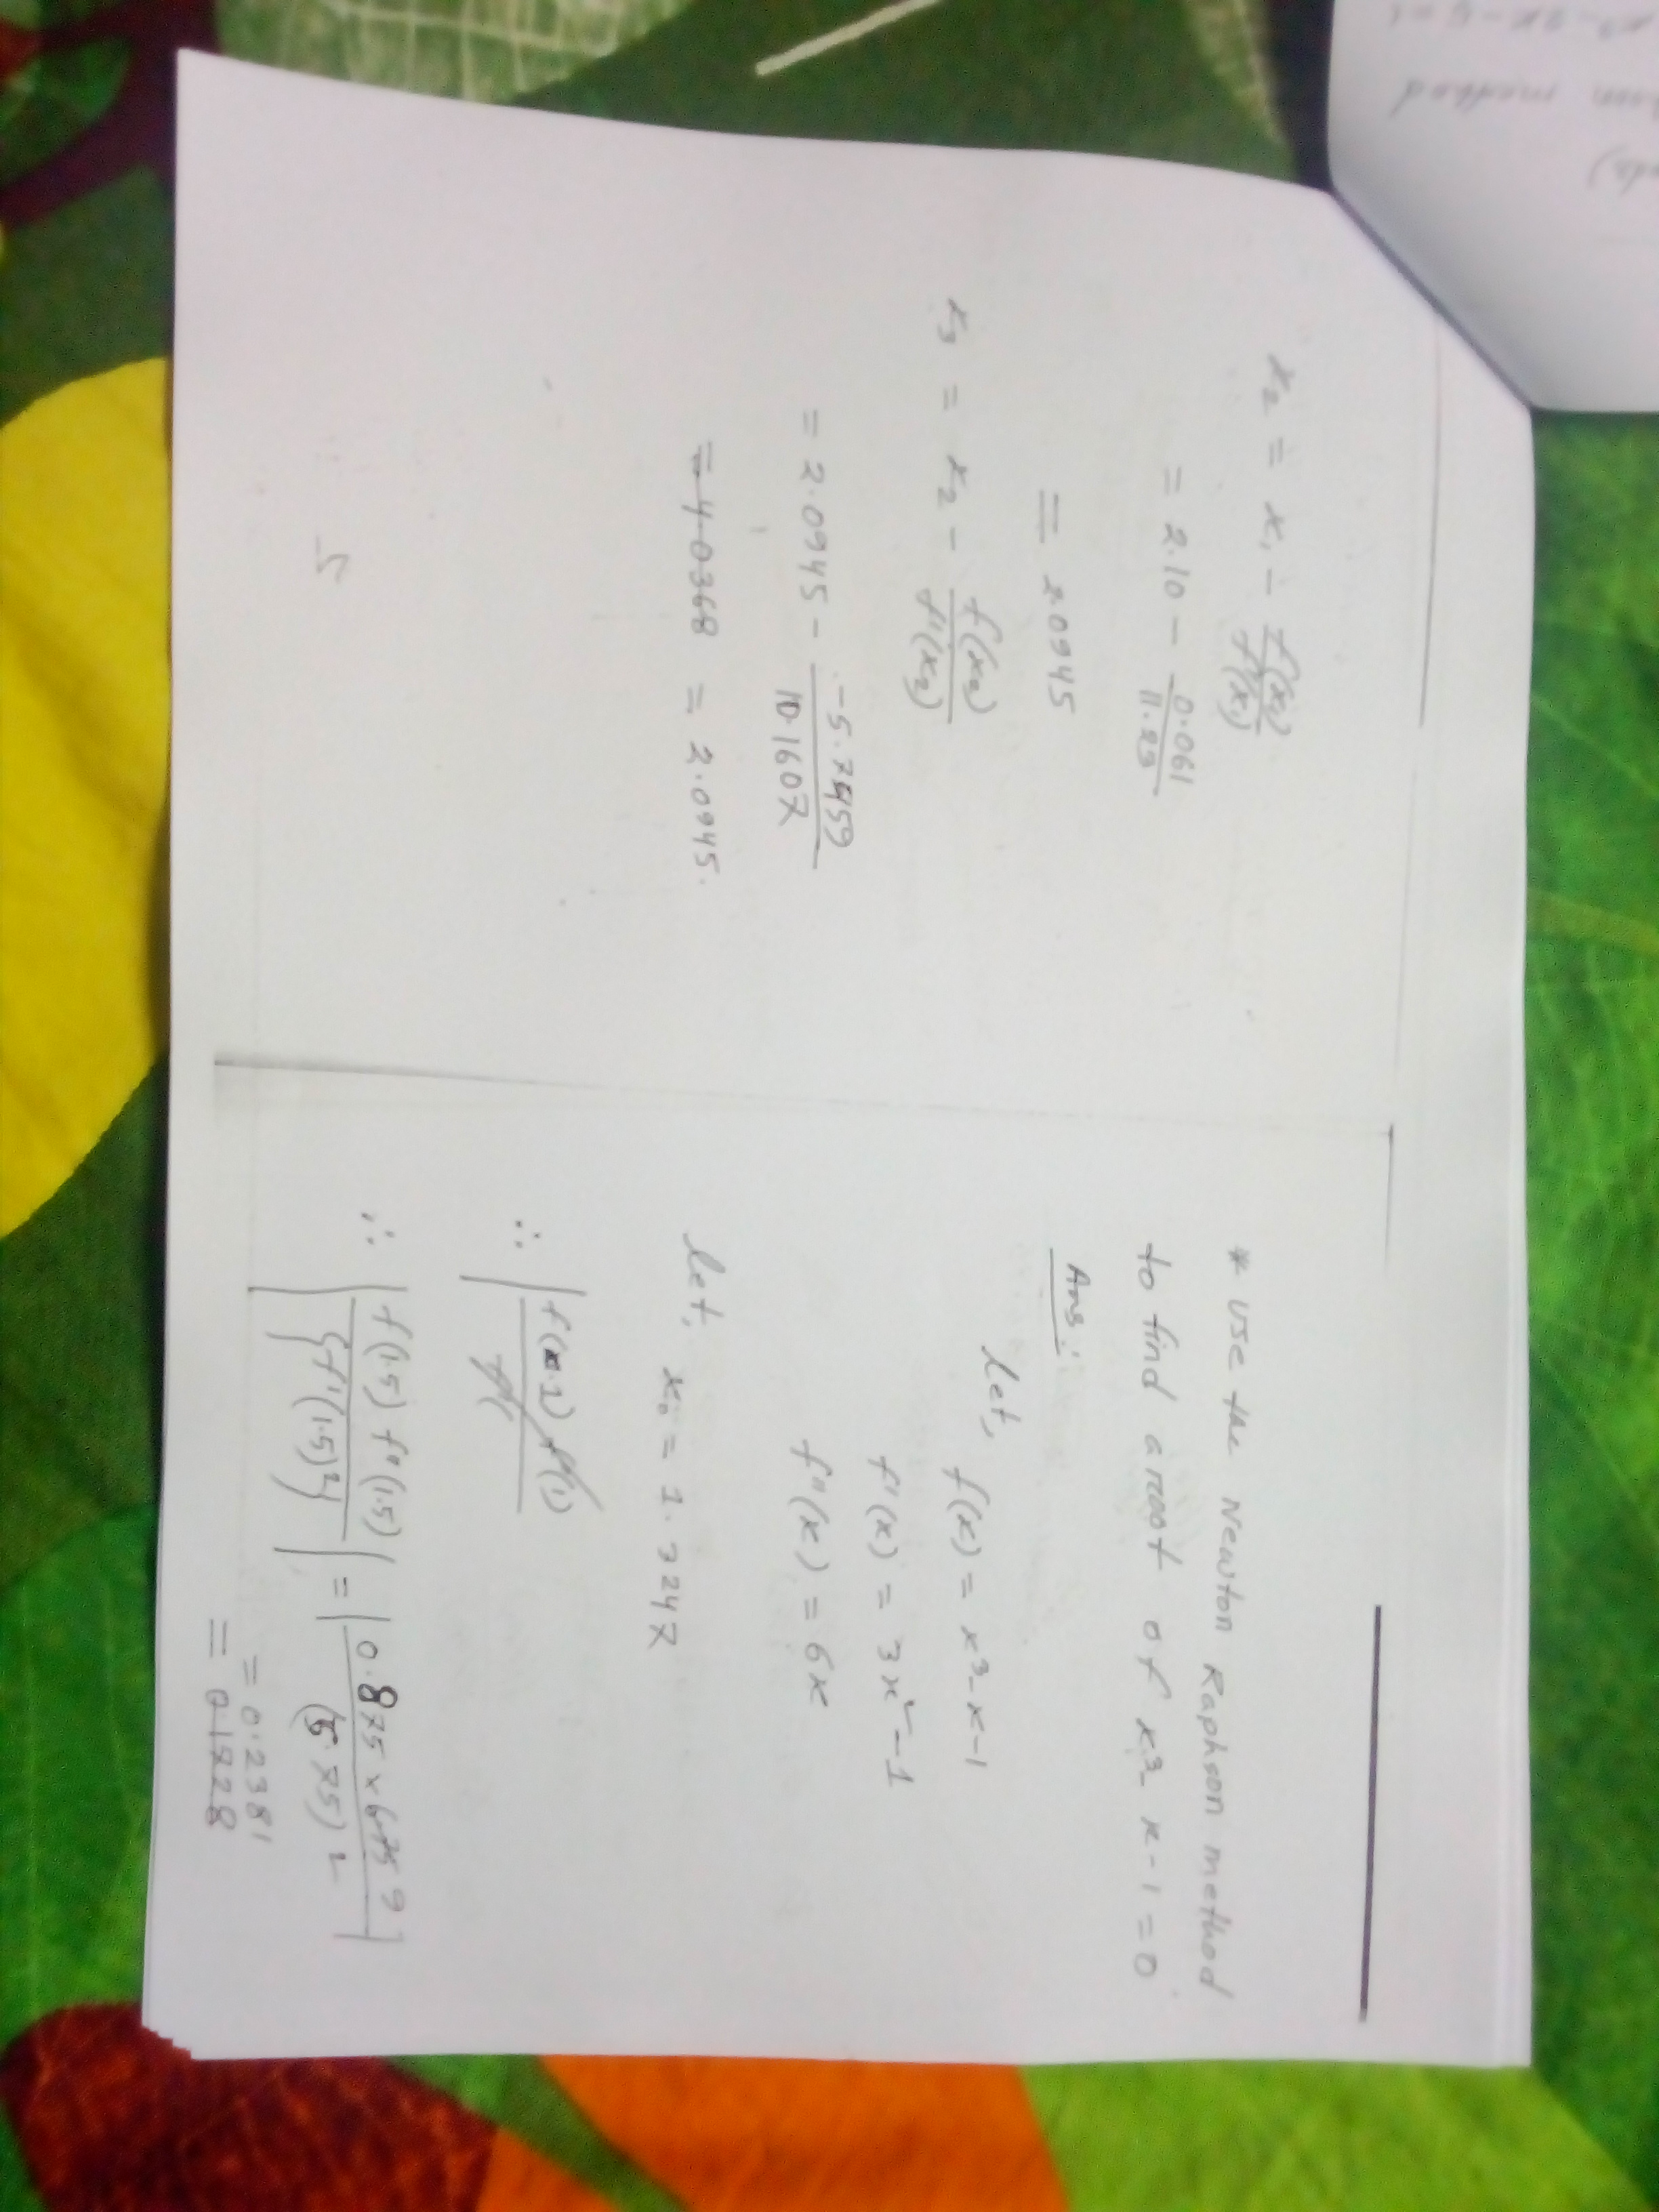 method
x³ - 2x - 5 =
x₂ = x₁ - f(x₁)/f'(x₁)
= 2.10 - 0.061/11.23
= 2.0945
x₃ = x₂ - f(x₂)/f'(x₂)
= 2.0945 - -5.7459/10.1607
= 4.0368 = 2.0945.
* Use the Newton Raphson method
to find a root of x³- x-1=0
Ans:
let,
f(x) = x³-x-1
f'(x) = 3x²-1
f"(x) = 6x
let,
x₀ = 1.3247
∴ |f(1) f'(1)/f'(
∴ |f(1.5) f"(1.5)/{f'(1.5)²}| = |0.875 x 9/(5.75)²|
= 0.2381
= 0.1828